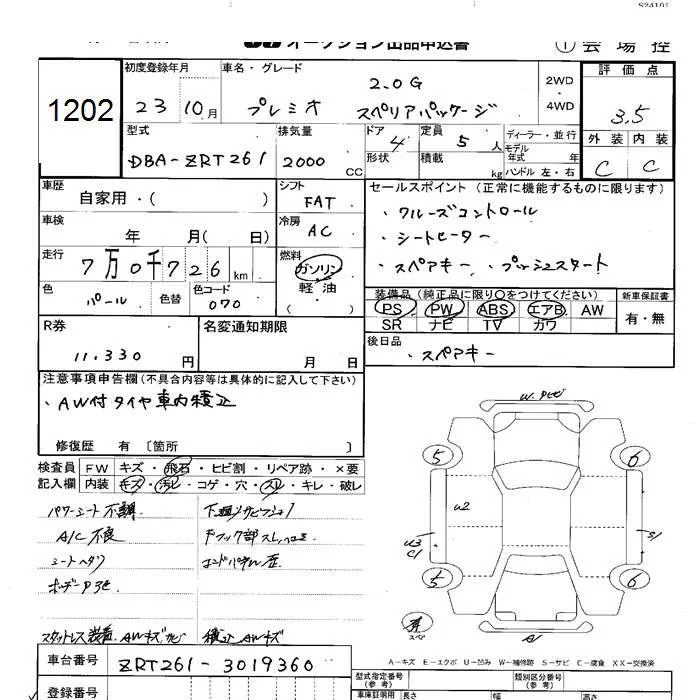 S24101
オークション出品申込書
① 会場控
1202
初度登録年月
23 10月
車名・グレード
2.0G
プレミオ スペリアパッケージ
2WD
・
4WD
評価点
3.5
外装 内装
C C
型式
DBA-ZRT261
排気量
2000 CC
ドア 4
形状
定員 5 人
積載 kg
ディーラー・並行
モデル年式 年
ハンドル 左・右
車歴
自家用・( )
シフト
FAT
セールスポイント(正常に機能するものに限ります)
・クルーズコントロール
・シートヒーター
・スペアキー ・プッシュスタート
車検
年 月( 日)
冷房
AC
走行
7万0千726 km
燃料
ガソリン
軽・油
( )
色
パール
色替
色コード
070
装備品(純正品に限り〇をつけてください)
PS PW ABS エアB AW
SR ナビ TV カワ
新車保証書
有・無
R券
11.330 円
名変通知期限
月 日
後日品
・スペアキー
注意事項申告欄(不具合内容等は具体的に記入して下さい)
・AW付タイヤ車内積込
修復歴 有 〔箇所 〕
検査員
記入欄
FW キズ・飛石・ヒビ割・リペア跡・×要
内装 キズ・汚レ・コゲ・穴・スレ・キレ・破レ
パワーシート不調
A/C 不良
シートヘタリ
スタットレス装着 AWキズ
積込 AWキズ
5 6
U2
U3
C1
S1
5 6
A1
スペ
A-キズ E-エクボ U-凹み W-補修跡 S-サビ C-腐食 XX-交換済
車台番号
ZRT261-3019360
登録番号
型式指定番号
(参考)
類別区分番号
(参考)
車庫証明用
長さ
幅
高さ